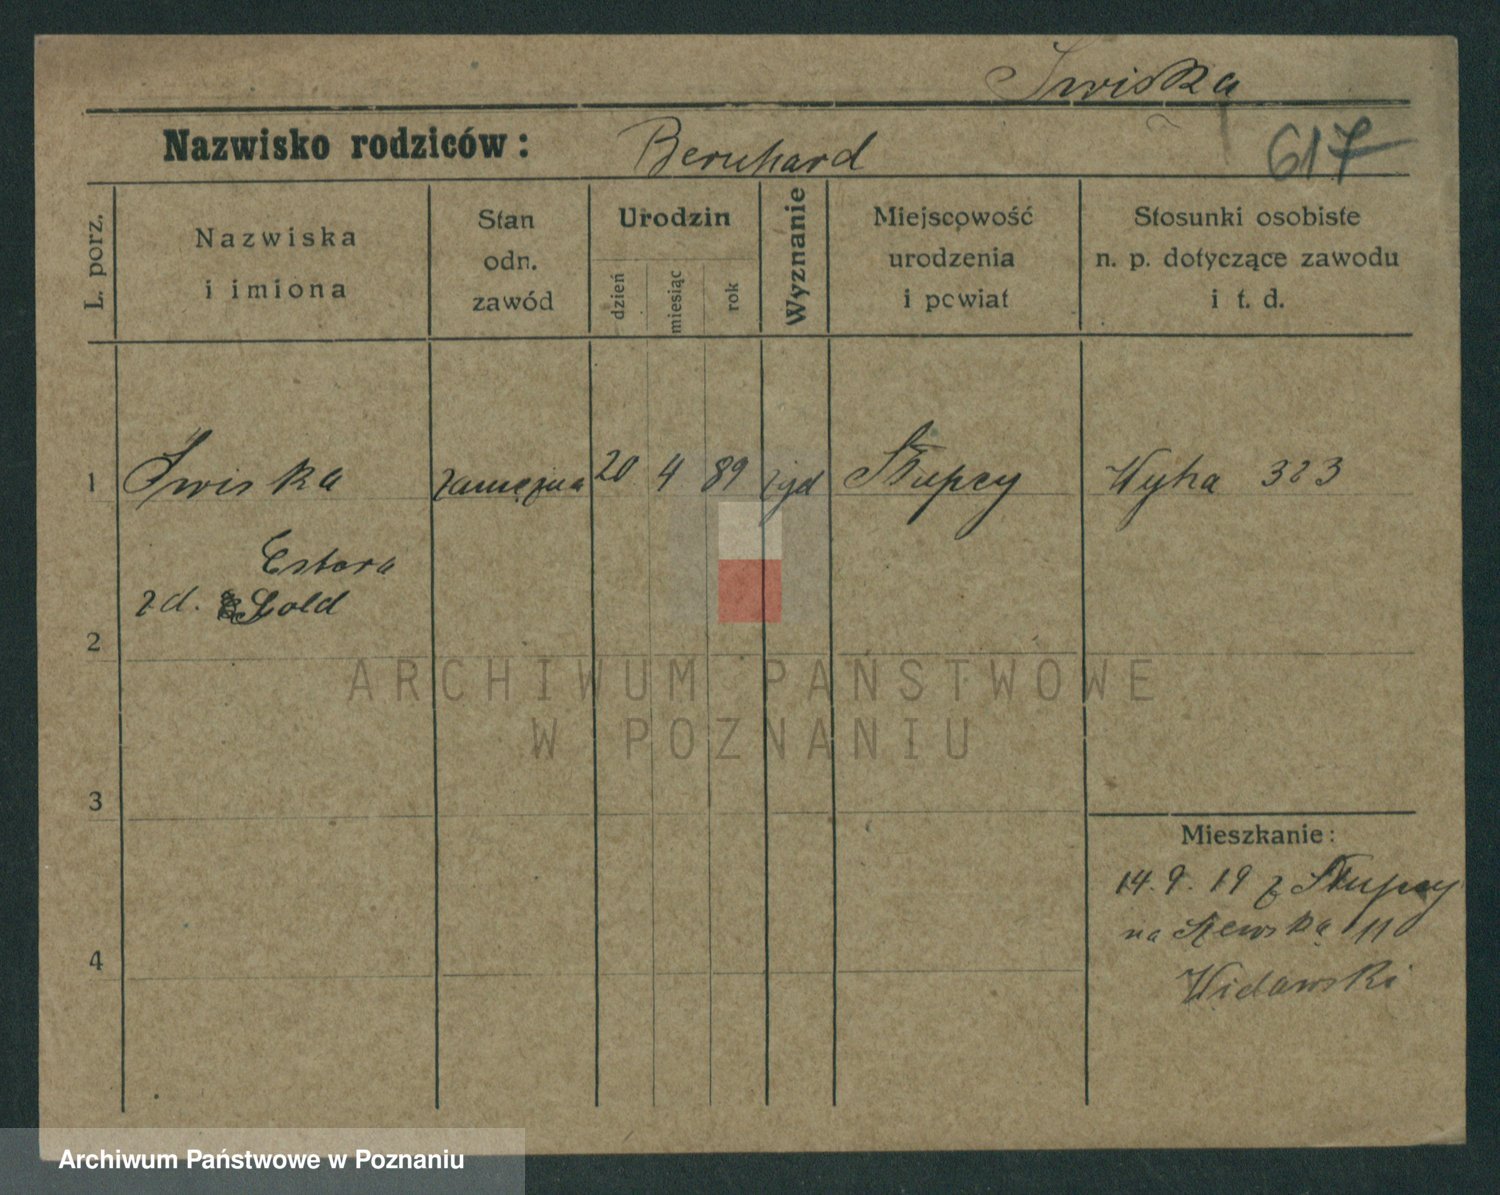 Iwiska
Nazwisko rodziców: Bernhard
617
L. porz.
Nazwiska
i imiona
Stan
odn.
zawód
Urodzin
dzień
miesiąc
rok
Wyznanie
Miejscowość
urodzenia
i powiat
Stosunki osobiste
n. p. dotyczące zawodu
i t. d.
1 Iwiska zamężna 20 4 89 żyd Słupcy Wyka 323
Estera
zd. Gold
2
ARCHIWUM PAŃSTWOWE
W POZNANIU
3
Mieszkanie:
14. 9. 19 z Słupcy
na Szewską 11
4
Widawski
Archiwum Państwowe w Poznaniu